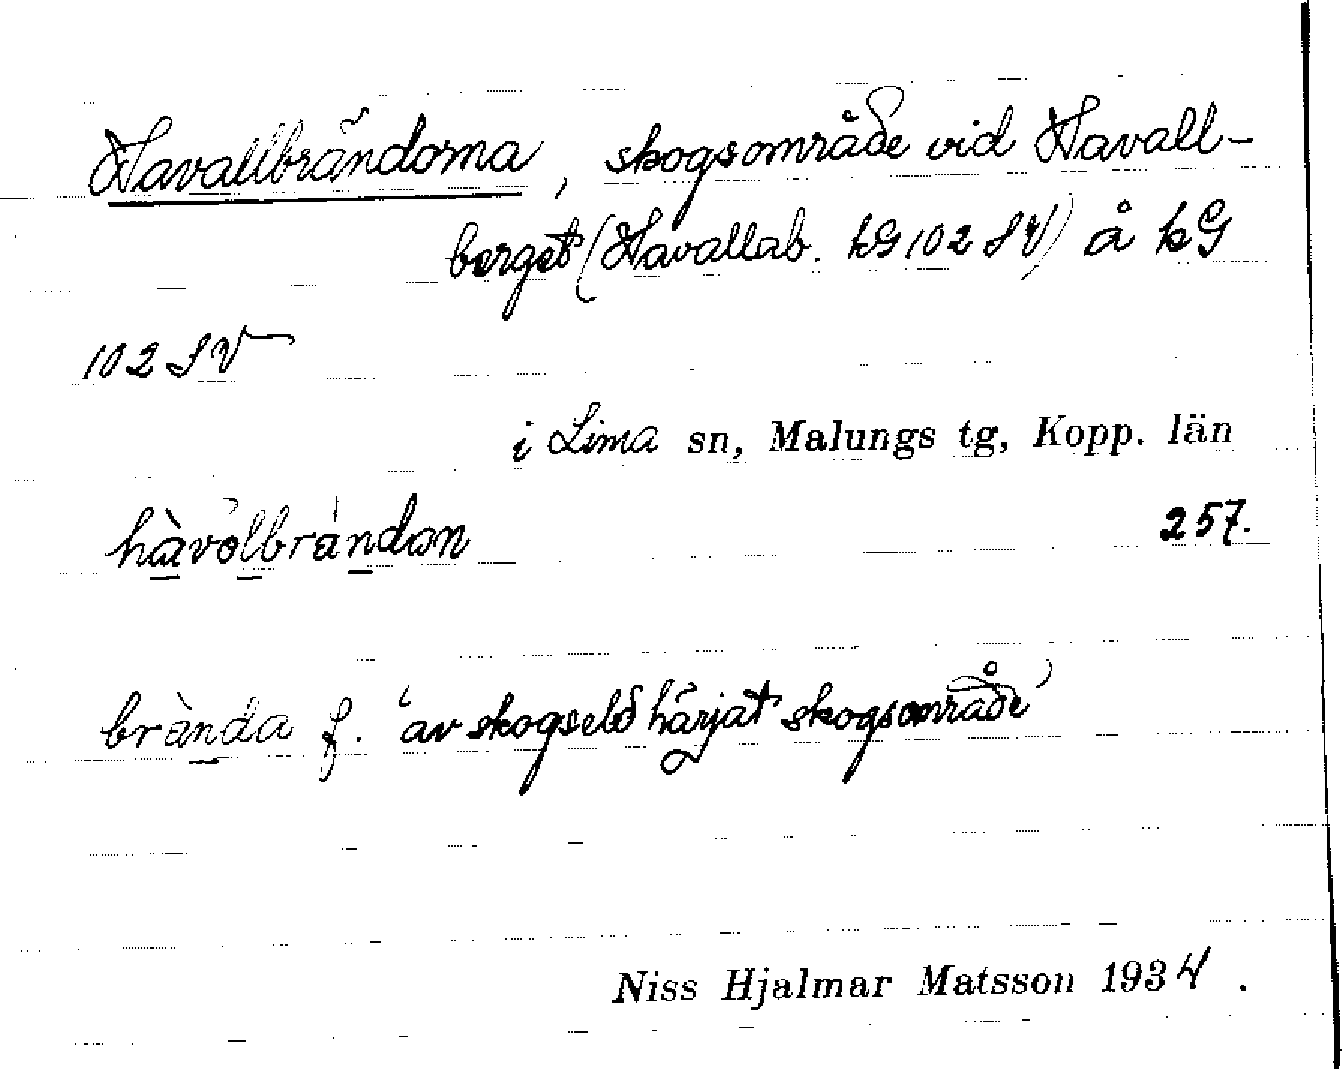 Havallbrändorna, skogsområde vid Havall-
berget (Havallab. kG 102 SV) å kG
102 SV
i Lima sn, Malungs tg, Kopp. län
hàvòlbràndan 257.
brànda f. 'av skogseld härjat skogsområde'
Niss Hjalmar Matsson 1934.